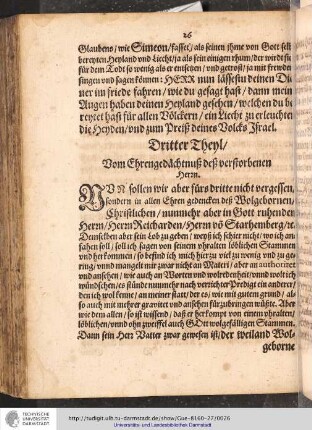 26
Glaubens/ wie Simeon/ fasset/ als seinen ihme von Gott selb
bereyten Heyland vnd Liecht/ ja als sein einigen rhum/ der wirdt sich
für dem Todt so wenig als er entsetzen/ vnd getrost/ ja mit frewden
singen vnd sagen können: HERR nun lässestu deinen Die
ner im friede fahren/ wie du gesagt hast/ dann mein
Augen haben deinen Heyland gesehen/ welchen du be
reytet hast für allen Völckern/ ein Liecht zu erleuchten
die Heyden/ vnd zum Preiß deines Volcks Israel.
Dritter Theyl/
Vom Ehrengedächtnuß deß verstorbenen
Herrn.
NVN sollen wir aber fürs dritte nicht vergessen/
sondern in allen Ehren gedencken deß Wolgebornen/
Christlichen/ nunmehr aber in Gott ruhenden
Herrn/ Herrn Reicharden/ Herrn võ Starhemberg/ etc.
Demselben aber sein Lob zu geben/ weyß ich schier nicht/ wo ich an-
fahen soll/ soll ich sagen von seinem vhralten löblichen Stammen
vnd herkommen/ so befind ich mich hierzu viel zu wenig vnd zu ge-
ring/ vnnd mangelt mir zwar nicht an Materi/ aber an authoritet
vnd ansehen/ wie auch an Worten vnd wolredenheit/ vnd wolt ich
wündschen/ es stünde nunmehr nach verrichter Predigt ein anderer/
den ich wol kenne/ an meiner statt/ der es/ wie mit gutem grund/ al-
so auch mit mehrer gravitet vnd ansehen fürzubringen wüßte. Aber
wie dem allen/ so ist wissend/ daß er herkompt von einem vhralten/
löblichen/ vnnd ohn zweiffel auch GOtt wolgefälligen Stammen.
Dann sein Herr Vatter zwar gewesen ist/ der weiland Wol-
geborne
TECHNISCHE
UNIVERSITÄT
DARMSTADT
http://tudigit.ulb.tu-darmstadt.de/show/Gue-8160-27/0026
Universitäts- und Landesbibliothek Darmstadt